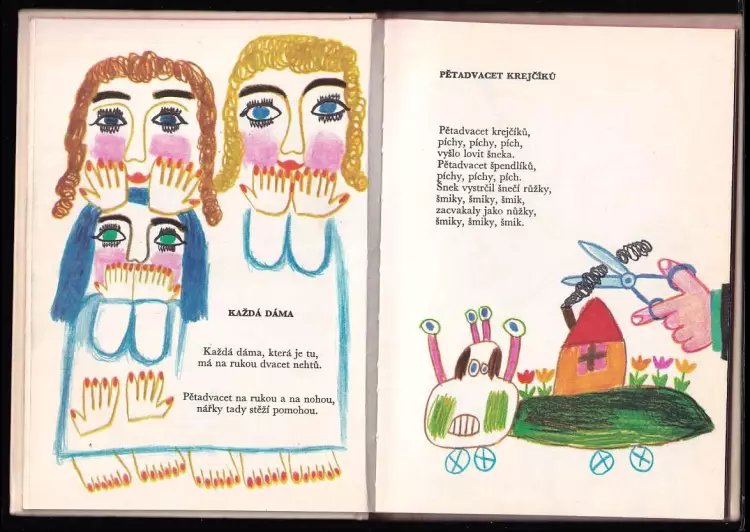 KAŽDÁ DÁMA
Každá dáma, která je tu,
má na rukou dvacet nehtů.
Pětadvacet na rukou a na nohou,
nářky tady stěží pomohou.
PĚTADVACET KREJČÍKŮ
Pětadvacet krejčíků,
píchy, píchy, pích,
vyšlo lovit šneka.
Pětadvacet špendlíků,
píchy, píchy, pích.
Šnek vystrčil šnečí růžky,
šmiky, šmiky, šmik,
zacvakaly jako nůžky,
šmiky, šmiky, šmik.